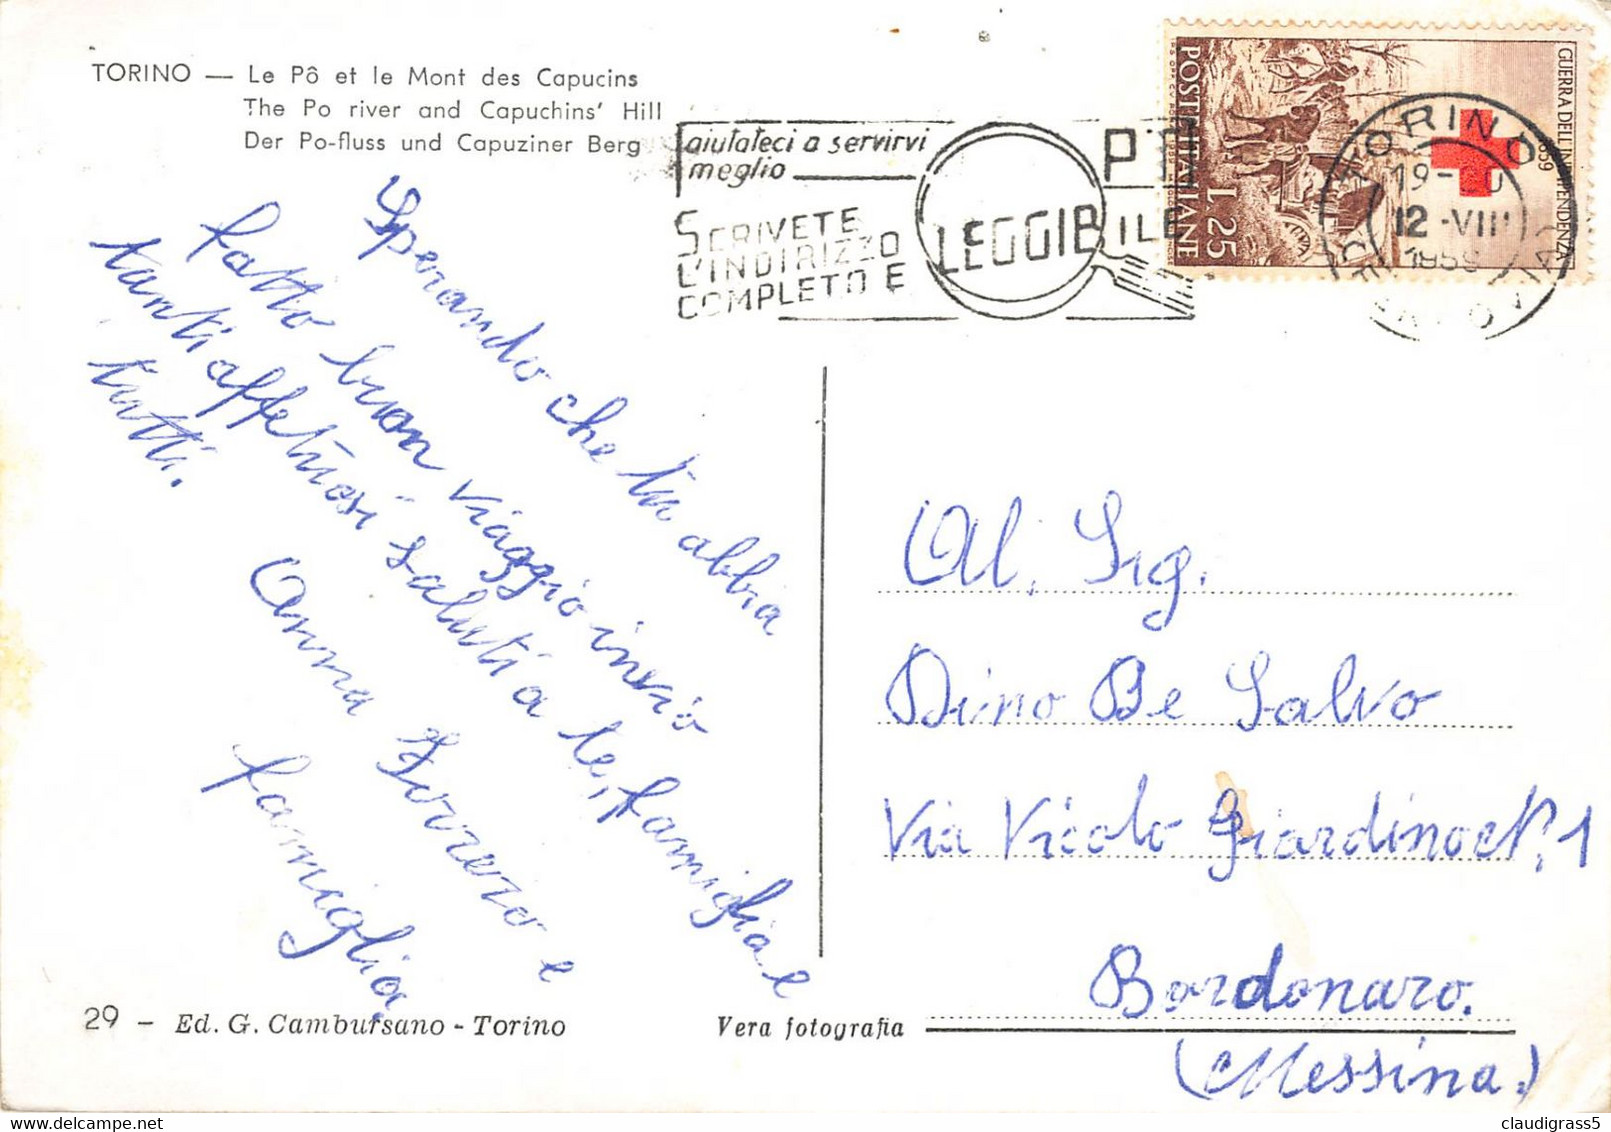 TORINO — Le Pô et le Mont des Capucins
The Po river and Capuchins' Hill
Der Po-fluss und Capuziner Berg
aiutateci a servirvi
meglio
SCRIVETE
L'INDIRIZZO
COMPLETO E
LEGGIBILE
POSTE ITALIANE L. 25
GUERRA DELL'INDIPENDENZA
1859
TORINO
19-
12-VIII
FERROVIA
Sperando che tu abbia
fatto buon viaggio invio
tanti affettuosi saluti a te, famiglia e
tutti.
Anna e
famiglia
Al. Sig.
Dino De Salvo
Via Vicolo Giardino N. 1
Bordonaro.
(Messina.)
29 - Ed. G. Cambursano - Torino
Vera fotografia
claudigrass5